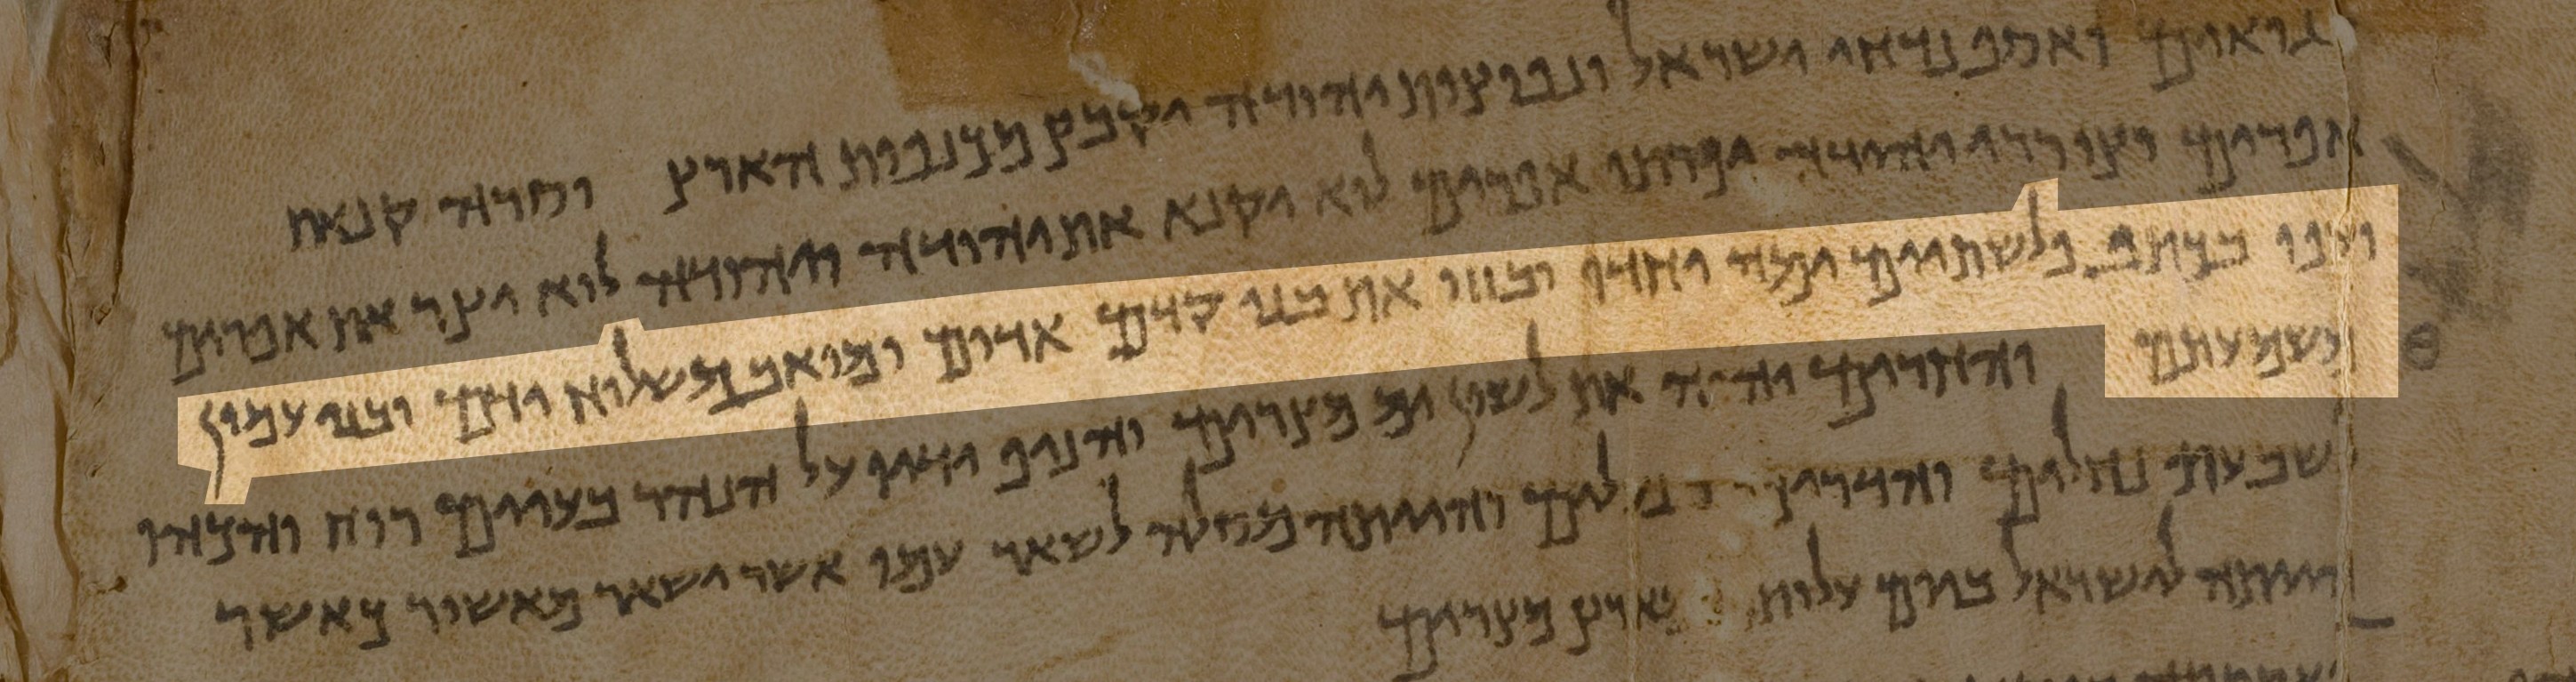 גואים ואסף נדחי ישראל ונפוצות יהודה יקבץ מכנפות הארץ וסרה קנאת
אפרים וצוררי יהודה יכרתו אפרים לוא יקנא את יהודה ויהודה לוא יצר את אפרים
ועפו בכתף פלשתיים ימה יחדיו ובזזו את בני קדם אדום ומואב משלוח ידם ובני עמון
משמעתם והחרים יהוה את לשון ים מצרים והניף ידיו על הנהר בעיים רוח והכהו
לשבעת נחלים והדריכו לים והייתה מסלה לשאר עמו אשר ישאר מאשור כאשר
הייתה לישראל ביום עלותו ארץ מצרים